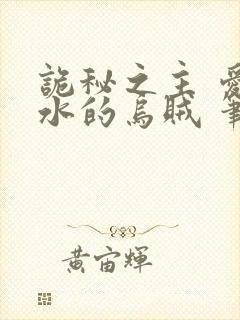 詭秘之主 愛
水的烏賊 筆
黃宙輝